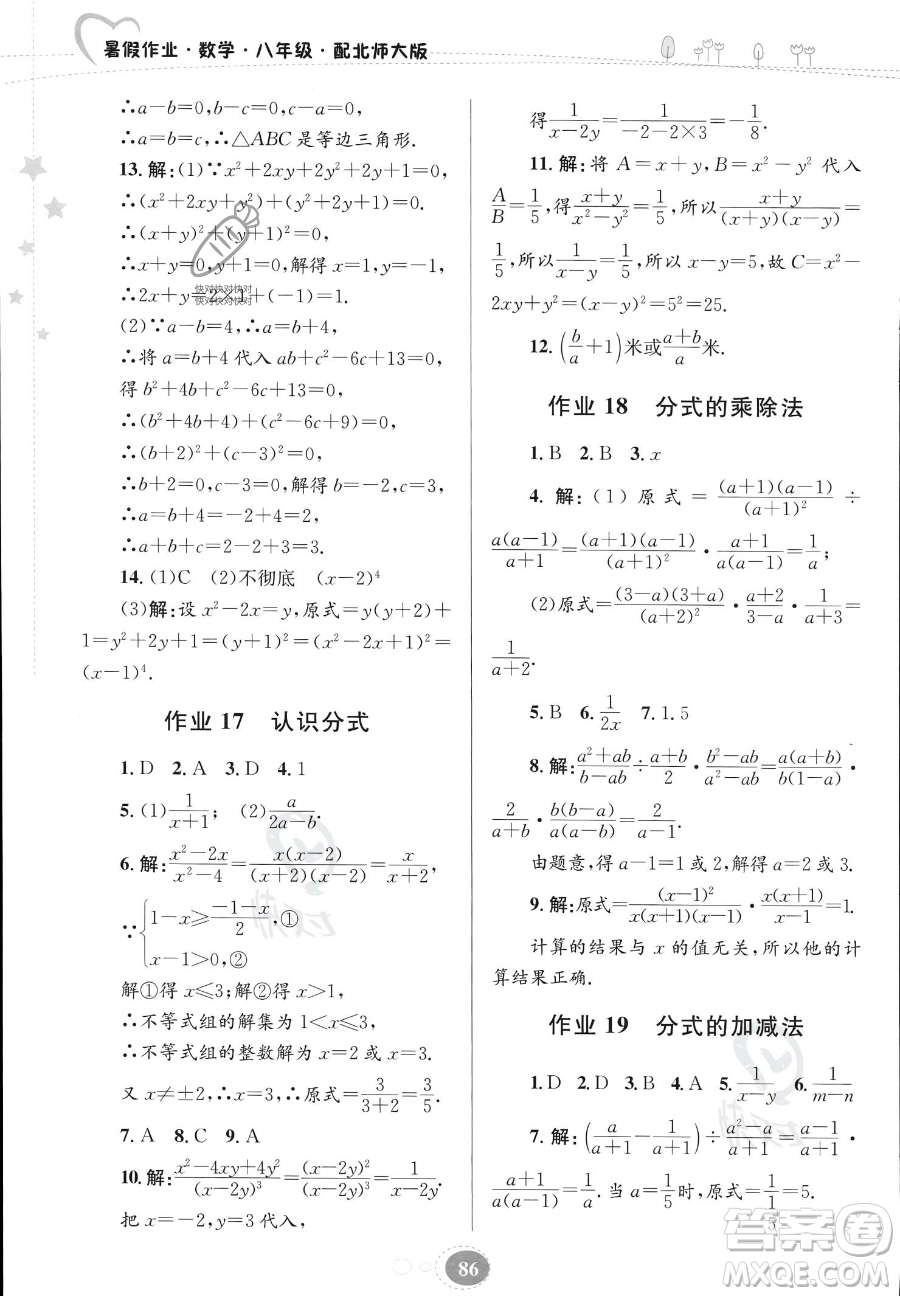 暑假作业·数学·八年级·配北师大版
∴a−b=0,b−c=0,
∴a=b=c,∴△ABC 是等边三角形.
13. 解:(1)∵x²+2xy+2y²+2y+1=0,
∴(x²+2xy+y²)+(y²+2y+1)=0.
∴(x+y)²+(y+1)²=0.
∴x+y=0,y+1=0,解得 x=1,y=−1,
∴2x+y=2×1+(−1)=1.
快对快对快对快对
快对快对快对快对
(2)∵a−b=4,∴a=b+4,
∴将 a=b+4 代入 ab+c²−6c+13=0,
得 b²+4b+c²−6c+13=0,
∴(b²+4b+4)+(c²−6c+9)=0,
∴(b+2)²+(c−3)²=0,
∴b+2=0,c−3=0,解得 b=−2,c=3,
∴a=b+4=−2+4=2,
∴a+b+c=2−2+3=3.
14. (1)C (2)不彻底 (x−2)⁴
(3)解:设 x²−2x=y,原式=y(y+2)+
1=y²+2y+1=(y+1)²=(x²−2x+1)²=
(x−1)⁴.
作业 17 认识分式
1. D 2. A 3. D 4. 1
5. (1) 1/(x+1); (2) a/(2a−b).
6. 解: (x²−2x)/(x²−4)=x(x−2)/((x+2)(x−2))=x/(x+2).
∵{1−x≥(−1−x)/2,①
x−1>0,②
解①得 x≤3;解②得 x>1,
∴不等式组的解集为 1<x≤3,
∴不等式组的整数解为 x=2 或 x=3.
又 x≠±2,∴x=3,∴原式=3/(3+2)=3/5.
7. A 8. C 9. A
10. 解: (x²−4xy+4y²)/(x−2y)³=(x−2y)²/(x−2y)³=1/(x−2y).
把 x=−2,y=3 代入,
得 1/(x−2y)=1/(−2−2×3)=−1/8.
11. 解:将 A=x+y,B=x²−y² 代入
A/B=1/5,得 (x+y)/(x²−y²)=1/5,所以 (x+y)/((x+y)(x−y))=
1/5,所以 1/(x−y)=1/5,所以 x−y=5,故 C=x²−
2xy+y²=(x−y)²=5²=25.
12. (b/a+1)米或 (a+b)/a 米.
作业 18 分式的乘除法
1. B 2. B 3. x
4. 解:(1)原式=(a+1)(a−1)/(a+1)²÷
a(a−1)/(a+1)=(a+1)(a−1)/(a+1)²·(a+1)/a(a−1)=1/a;
(2)原式=(3−a)(3+a)/(a+2)²·(a+2)/(3−a)·1/(a+3)=
1/(a+2).
5. B 6. 1/(2x) 7. 1.5
8. 解: (a²+ab)/(b−ab)÷(a+b)/2·(b²−ab)/(a²−ab)=a(a+b)/b(1−a)·
2/(a+b)·b(b−a)/a(a−b)=2/(a−1).
由题意,得 a−1=1 或 2,解得 a=2 或 3.
9. 解:原式=(x−1)²/(x(x+1)(x−1))·x(x+1)/(x−1)=1.
计算的结果与 x 的值无关,所以他的计
算结果正确.
作业 19 分式的加减法
1. D 2. D 3. B 4. A 5. 1/(x−y) 6. 1/(m−n)
7. 解: (a/(a+1)−1/(a+1))÷(a²−a)/(a+1)=(a−1)/(a+1)·
(a+1)/a(a−1)=1/a. 当 a=1/5 时,原式=1/(1/5)=5.
86
答案卷
MXQE.COM